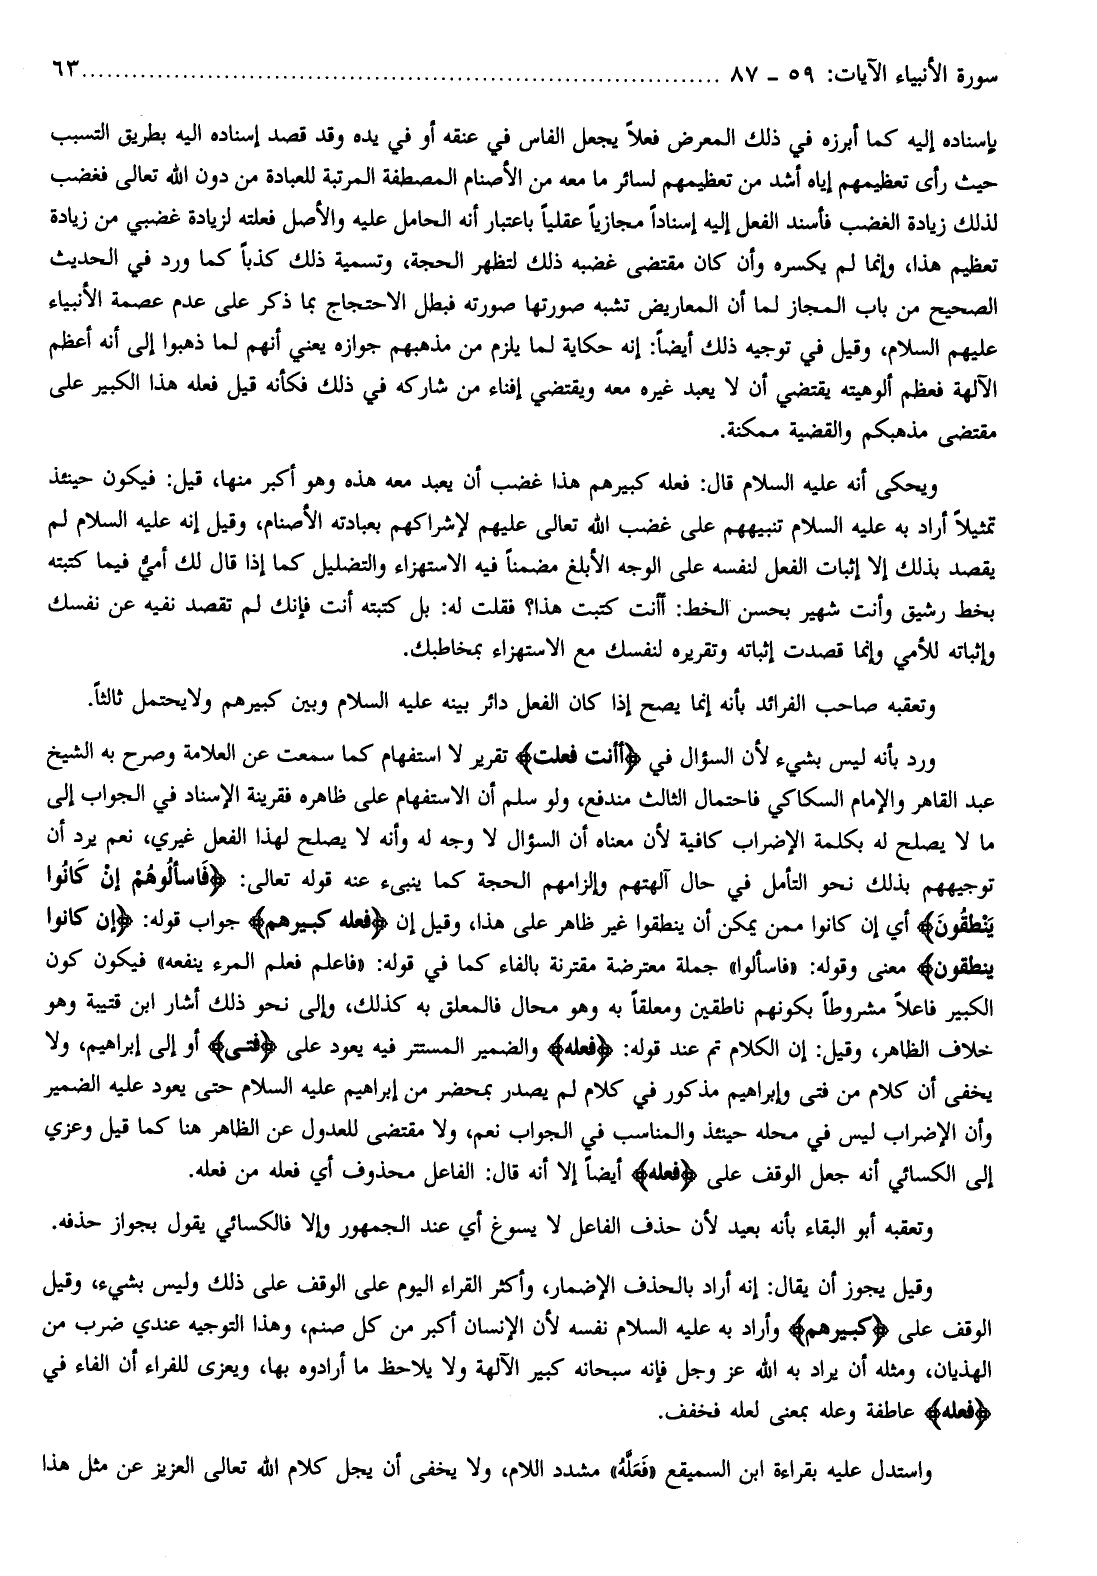 سورة الأنبياء الآيات: ٥٩ - ٨٧ ........................................................................ ٦٣
بإسناده إليه كما أبرزه في ذلك المعرض فعلاً يجعل الفاس في عنقه أو في يده وقد قصد إسناده اليه بطريق التسبب
حيث رأى تعظيمهم إياه أشد من تعظيمهم لسائر ما معه من الأصنام المصطفة المرتبة للعبادة من دون الله تعالى فغضب
لذلك زيادة الغضب فأسند الفعل إليه إسناداً مجازياً عقلياً باعتبار أنه الحامل عليه والأصل فعلته لزيادة غضبي من زيادة
تعظيم هذا، وإنما لم يكسره وأن كان مقتضى غضبه ذلك لتظهر الحجة، وتسمية ذلك كذباً كما ورد في الحديث
الصحيح من باب المجاز لما أن المعاريض تشبه صورتها صورته فبطل الاحتجاج بما ذكر على عدم عصمة الأنبياء
عليهم السلام، وقيل في توجيه ذلك أيضاً: إنه حكاية لما يلزم من مذهبهم جوازه يعني أنهم لما ذهبوا إلى أنه أعظم
الآلهة فعظم ألوهيته يقتضي أن لا يعبد غيره معه ويقتضي إفناء من شاركه في ذلك فكأنه قيل فعله هذا الكبير على
مقتضى مذهبكم والقضية ممكنة.
ويحكى أنه عليه السلام قال: فعله كبيرهم هذا غضب أن يعبد معه هذه وهو أكبر منها، قيل: فيكون حينئذ
تمثيلاً أراد به عليه السلام تنبيههم على غضب الله تعالى عليهم لإشراكهم بعبادته الأصنام، وقيل إنه عليه السلام لم
يقصد بذلك إلا إثبات الفعل لنفسه على الوجه الأبلغ مضمناً فيه الاستهزاء والتضليل كما إذا قال لك أميّ فيما كتبته
بخط رشيق وأنت شهير بحسن الخط: أأنت كتبت هذا؟ فقلت له: بل كتبته أنت فإنك لم تقصد نفيه عن نفسك
وإثباته للأمي وإنما قصدت إثباته وتقريره لنفسك مع الاستهزاء بمخاطبك.
وتعقبه صاحب الفرائد بأنه إنما يصح إذا كان الفعل دائر بينه عليه السلام وبين كبيرهم ولايحتمل ثالثاً.
ورد بأنه ليس بشيء لأن السؤال في ﴿أأنت فعلت﴾ تقرير لا استفهام كما سمعت عن العلامة وصرح به الشيخ
عبد القاهر والإمام السكاكي فاحتمال الثالث مندفع، ولو سلم أن الاستفهام على ظاهره فقرينة الإسناد في الجواب إلى
ما لا يصلح له بكلمة الإضراب كافية لأن معناه أن السؤال لا وجه له وأنه لا يصلح لهذا الفعل غيري، نعم يرد أن
توجيههم بذلك نحو التأمل في حال آلهتهم وإلزامهم الحجة كما ينبىء عنه قوله تعالى: ﴿فَاسألُوهُمْ إنْ كَانُوا
يَنْطقُونَ﴾ أي إن كانوا ممن يمكن أن ينطقوا غير ظاهر على هذا، وقيل إن ﴿فعله كبيرهم﴾ جواب قوله: ﴿إن كانوا
ينطقون﴾ معنى وقوله: «فاسألوا» جملة معترضة مقترنة بالفاء كما في قوله: «فاعلم فعلم المرء ينفعه» فيكون كون
الكبير فاعلاً مشروطاً بكونهم ناطقين ومعلقاً به وهو محال فالمعلق به كذلك، وإلى نحو ذلك أشار ابن قتيبة وهو
خلاف الظاهر، وقيل: إن الكلام تم عند قوله: ﴿فعله﴾ والضمير المستتر فيه يعود على ﴿فتى﴾ أو إلى إبراهيم، ولا
يخفى أن كلام من فتى وإبراهيم مذكور في كلام لم يصدر بمحضر من إبراهيم عليه السلام حتى يعود عليه الضمير
وأن الإضراب ليس في محله حينئذ والمناسب في الجواب نعم، ولا مقتضى للعدول عن الظاهر هنا كما قيل وعزي
إلى الكسائي أنه جعل الوقف على ﴿فعله﴾ أيضاً إلا أنه قال: الفاعل محذوف أي فعله من فعله.
وتعقبه أبو البقاء بأنه بعيد لأن حذف الفاعل لا يسوغ أي عند الجمهور وإلا فالكسائي يقول بجواز حذفه.
وقيل يجوز أن يقال: إنه أراد بالحذف الإضمار، وأكثر القراء اليوم على الوقف على ذلك وليس بشيء، وقيل
الوقف على ﴿كبيرهم﴾ وأراد به عليه السلام نفسه لأن الإنسان أكبر من كل صنم، وهذا التوجيه عندي ضرب من
الهذيان، ومثله أن يراد به الله عز وجل فإنه سبحانه كبير الآلهة ولا يلاحظ ما أرادوه بها، ويعزى للفراء أن الفاء في
﴿فعله﴾ عاطفة وعله بمعنى لعله فخفف.
واستدل عليه بقراءة ابن السميقع «فَعَلَّهُ» مشدد اللام، ولا يخفى أن يجل كلام الله تعالى العزيز عن مثل هذا